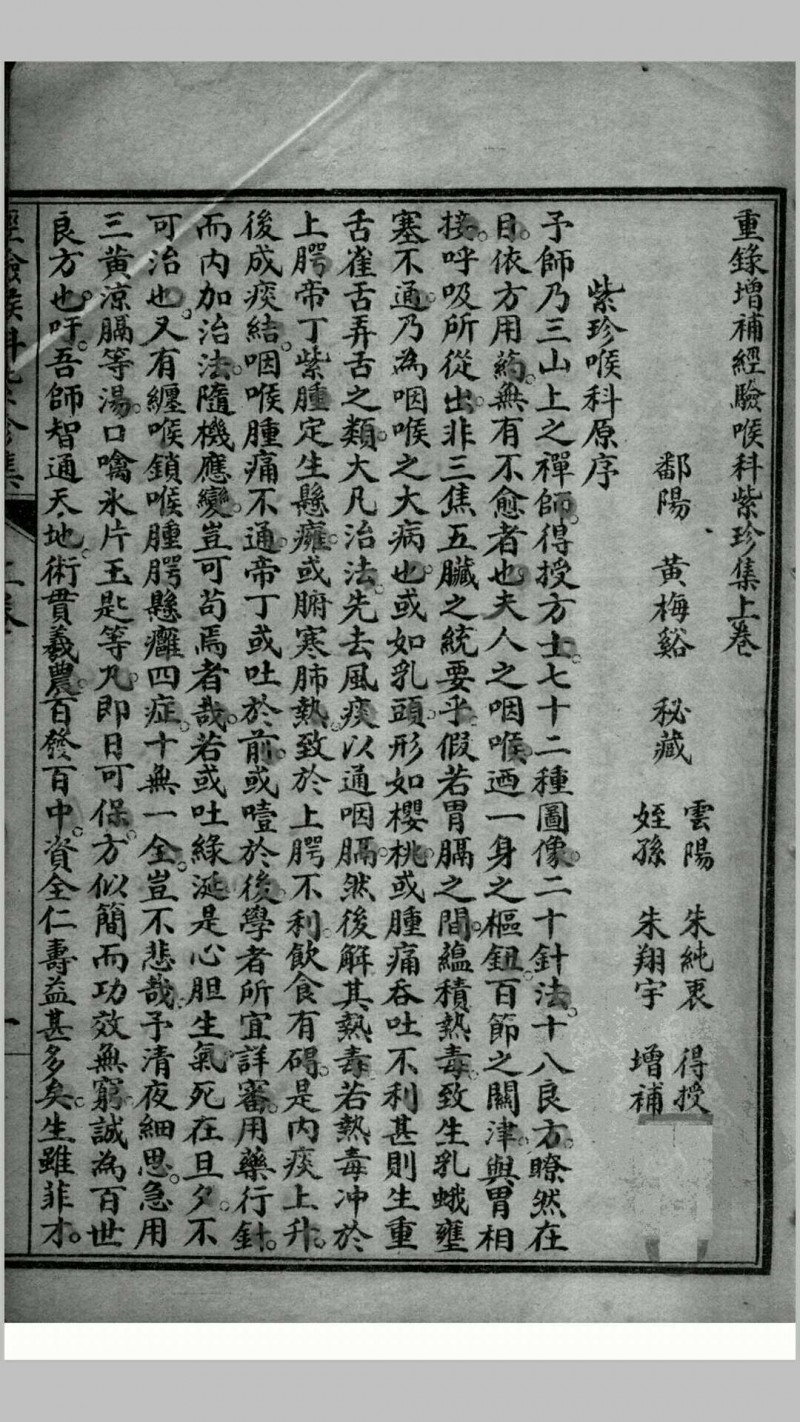 重錄增補經驗喉科紫珍集上卷
雲陽 朱純衷 得授
鄱陽 黃梅谿 秘藏
姪孫 朱翔宇 增補
紫珍喉科原序
予師乃三山上之禪師。得授方士。七十二種圖像。二十針法。十八良方。瞭然在
目。依方用药。無有不愈者也。夫人之咽喉。迺一身之樞鈕。百節之關津。與胃相
接。呼吸所從出。非三焦五臟之統要乎。假若胃膈之間。蘊積熱毒。致生乳蛾壅
塞不通。乃為咽喉之大病也。或如乳頭。形如櫻桃。或腫痛吞吐不利。甚則生重
舌雀舌弄舌之類。大凡治法。先去風痰。以通咽膈。然後解其熱毒。若熱毒冲於
上腭。帝丁紫腫。定生懸癰。或腑寒肺熱。致於上腭不利。飲食有碍。是内痰上升。
後成痰結。咽喉腫痛不通。帝丁或吐於前。或噎於後。學者所宜詳審。用藥行針。
而内加治法。隨機應變。豈可苟焉者哉。若或吐綠涎。是心胆生氣。死在旦夕。不
可治也。又有纏喉鎖喉腫腭懸癰四症。十無一全。豈不悲哉。予清夜細思。急用
三黃涼膈等湯。口噙氷片玉匙等丸。即日可保。方似簡而功效無窮。誠為百世
良方也。吁。吾師智通天地。術貫羲農。百發百中。資全仁壽。益甚多矣。生雖菲才。